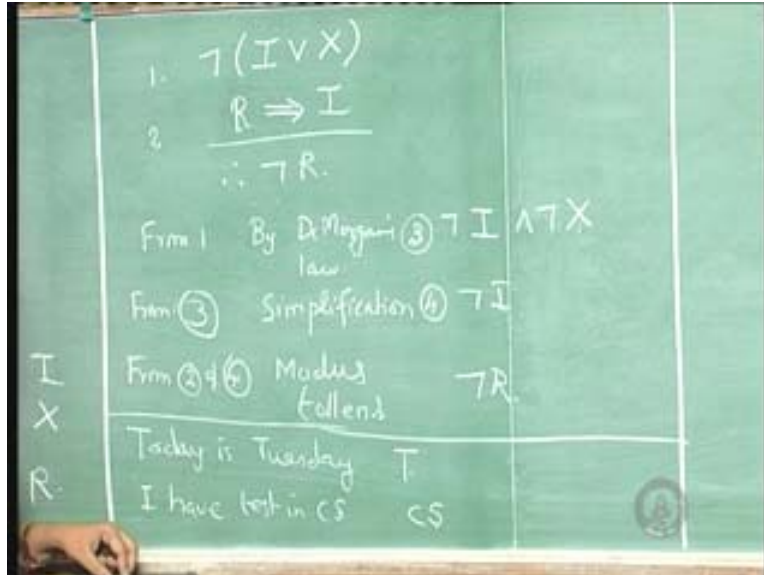 1. ¬(I ∨ X)
2 R ⇒ I
∴ ¬R.
From 1 By DeMorgan's ③ ¬I ∧ ¬X
law
From ③ Simplification ④ ¬I
From ② & ④ Modus ¬R.
tollens
Today is Tuesday T
I have test in CS CS
I
X
R.